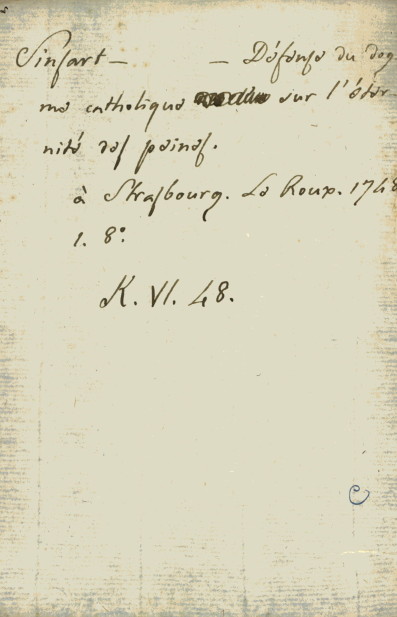 Sinsart — — Défense du dog-
me catholique sur l'éter-
nité des peines.
à Strasbourg. Le Roux. 1748
1. 8°.
K. VI. 48.
C